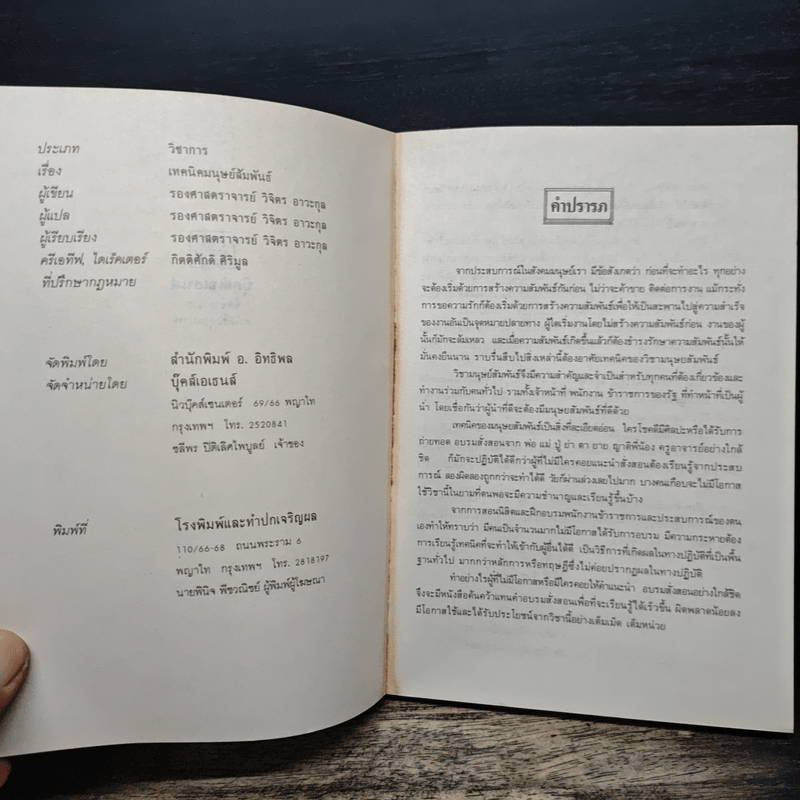 ประเภท วิชาการ
เรื่อง เทคนิคมนุษย์สัมพันธ์
ผู้เขียน รองศาสตราจารย์ วิจิตร อาวะกุล
ผู้แปล รองศาสตราจารย์ วิจิตร อาวะกุล
ผู้เรียบเรียง รองศาสตราจารย์ วิจิตร อาวะกุล
ครีเอทีฟ, ไดเร็คเตอร์ กิตติศักดิ์ ศิริมูล
ที่ปรึกษากฎหมาย
จัดพิมพ์โดย สำนักพิมพ์ อ. อิทธิพล
จัดจำหน่ายโดย บุ๊คส์เอเธนส์
นิวบุ๊คส์เซนเตอร์ 69/66 พญาไท
กรุงเทพฯ โทร. 2520841
ชลีพร ปิติเลิศไพบูลย์ เจ้าของ
พิมพ์ที่ โรงพิมพ์และทำปกเจริญผล
110/66-68 ถนนพระราม 6
พญาไท กรุงเทพฯ โทร. 2818197
นายพินิจ พืชวณิชย์ ผู้พิมพ์ผู้โฆษณา
คำปรารภ
จากประสบการณ์ในสังคมมนุษย์เรา มีข้อสังเกตว่า ก่อนที่จะทำอะไร ทุกอย่าง
จะต้องเริ่มด้วยการสร้างความสัมพันธ์กันก่อน ไม่ว่าจะค้าขาย ติดต่อการงาน แม้กระทั่ง
การขอความรักก็ต้องเริ่มด้วยการสร้างความสัมพันธ์เพื่อให้เป็นสะพานไปสู่ความสำเร็จ
ของงานอันเป็นจุดหมายปลายทาง ผู้ใดเริ่มงานโดยไม่สร้างความสัมพันธ์ก่อน งานของผู้
นั้นก็มักจะล้มเหลว และเมื่อความสัมพันธ์เกิดขึ้นแล้วก็ต้องธำรงรักษาความสัมพันธ์นั้นให้
มั่นคงยืนนาน ราบรื่นสืบไปสิ่งเหล่านี้ต้องอาศัยเทคนิคของวิชามนุษยสัมพันธ์
วิชามนุษย์สัมพันธ์จึงมีความสำคัญและจำเป็นสำหรับทุกคนที่ต้องเกี่ยวข้องและ
ทำงานร่วมกับคนทั่วไป รวมทั้งเจ้าหน้าที่ พนักงาน ข้าราชการของรัฐ ที่ทำหน้าที่เป็นผู้
นำ โดยเชื่อกันว่าผู้นำที่ดีจะต้องมีมนุษยสัมพันธ์ที่ดีด้วย
เทคนิคของมนุษยสัมพันธ์เป็นสิ่งที่ละเอียดอ่อน ใครโชคดีมีศิลปะหรือได้รับการ
ถ่ายทอด อบรมสั่งสอนจาก พ่อ แม่ ปู่ ย่า ตา ยาย ญาติพี่น้อง ครูอาจารย์อย่างใกล้
ชิด ก็มักจะปฏิบัติได้ดีกว่าผู้ที่ไม่มีใครคอยแนะนำสั่งสอนต้องเรียนรู้จากประสบ
การณ์ ลองผิดลองถูกกว่าจะทำได้ดี วัยก็ผ่านล่วงเลยไปมาก บางคนเกือบจะไม่มีโอกาส
ใช้วิชานี้ในยามที่ตนพอจะมีความชำนาญและเรียนรู้ขึ้นบ้าง
จากการสอนนิสิตและฝึกอบรมพนักงานข้าราชการและประสบการณ์ของตน
เองทำให้ทราบว่า มีคนเป็นจำนวนมากไม่มีโอกาสได้รับการอบรม มีความกระหายต้อง
การเรียนรู้เทคนิคที่จะทำให้เข้ากับผู้อื่นได้ดี เป็นวิธีการที่เกิดผลในทางปฏิบัติที่เป็นพื้น
ฐานทั่วไป มากกว่าหลักการหรือทฤษฎีซึ่งไม่ค่อยปรากฏผลในทางปฏิบัติ
ทำอย่างไรผู้ที่ไม่มีโอกาสหรือมีใครคอยให้คำแนะนำ อบรมสั่งสอนอย่างใกล้ชิด
จึงจะมีหนังสือค้นคว้าแทนคำอบรมสั่งสอนเพื่อที่จะเรียนรู้ได้เร็วขึ้น ผิดพลาดน้อยลง
มีโอกาสใช้และได้รับประโยชน์จากวิชานี้อย่างเต็มเม็ด เต็มหน่วย